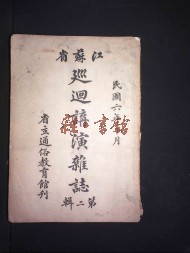 江蘇省
民國六年 月
巡迴講演雜誌
第二輯
省立通俗教育館刊